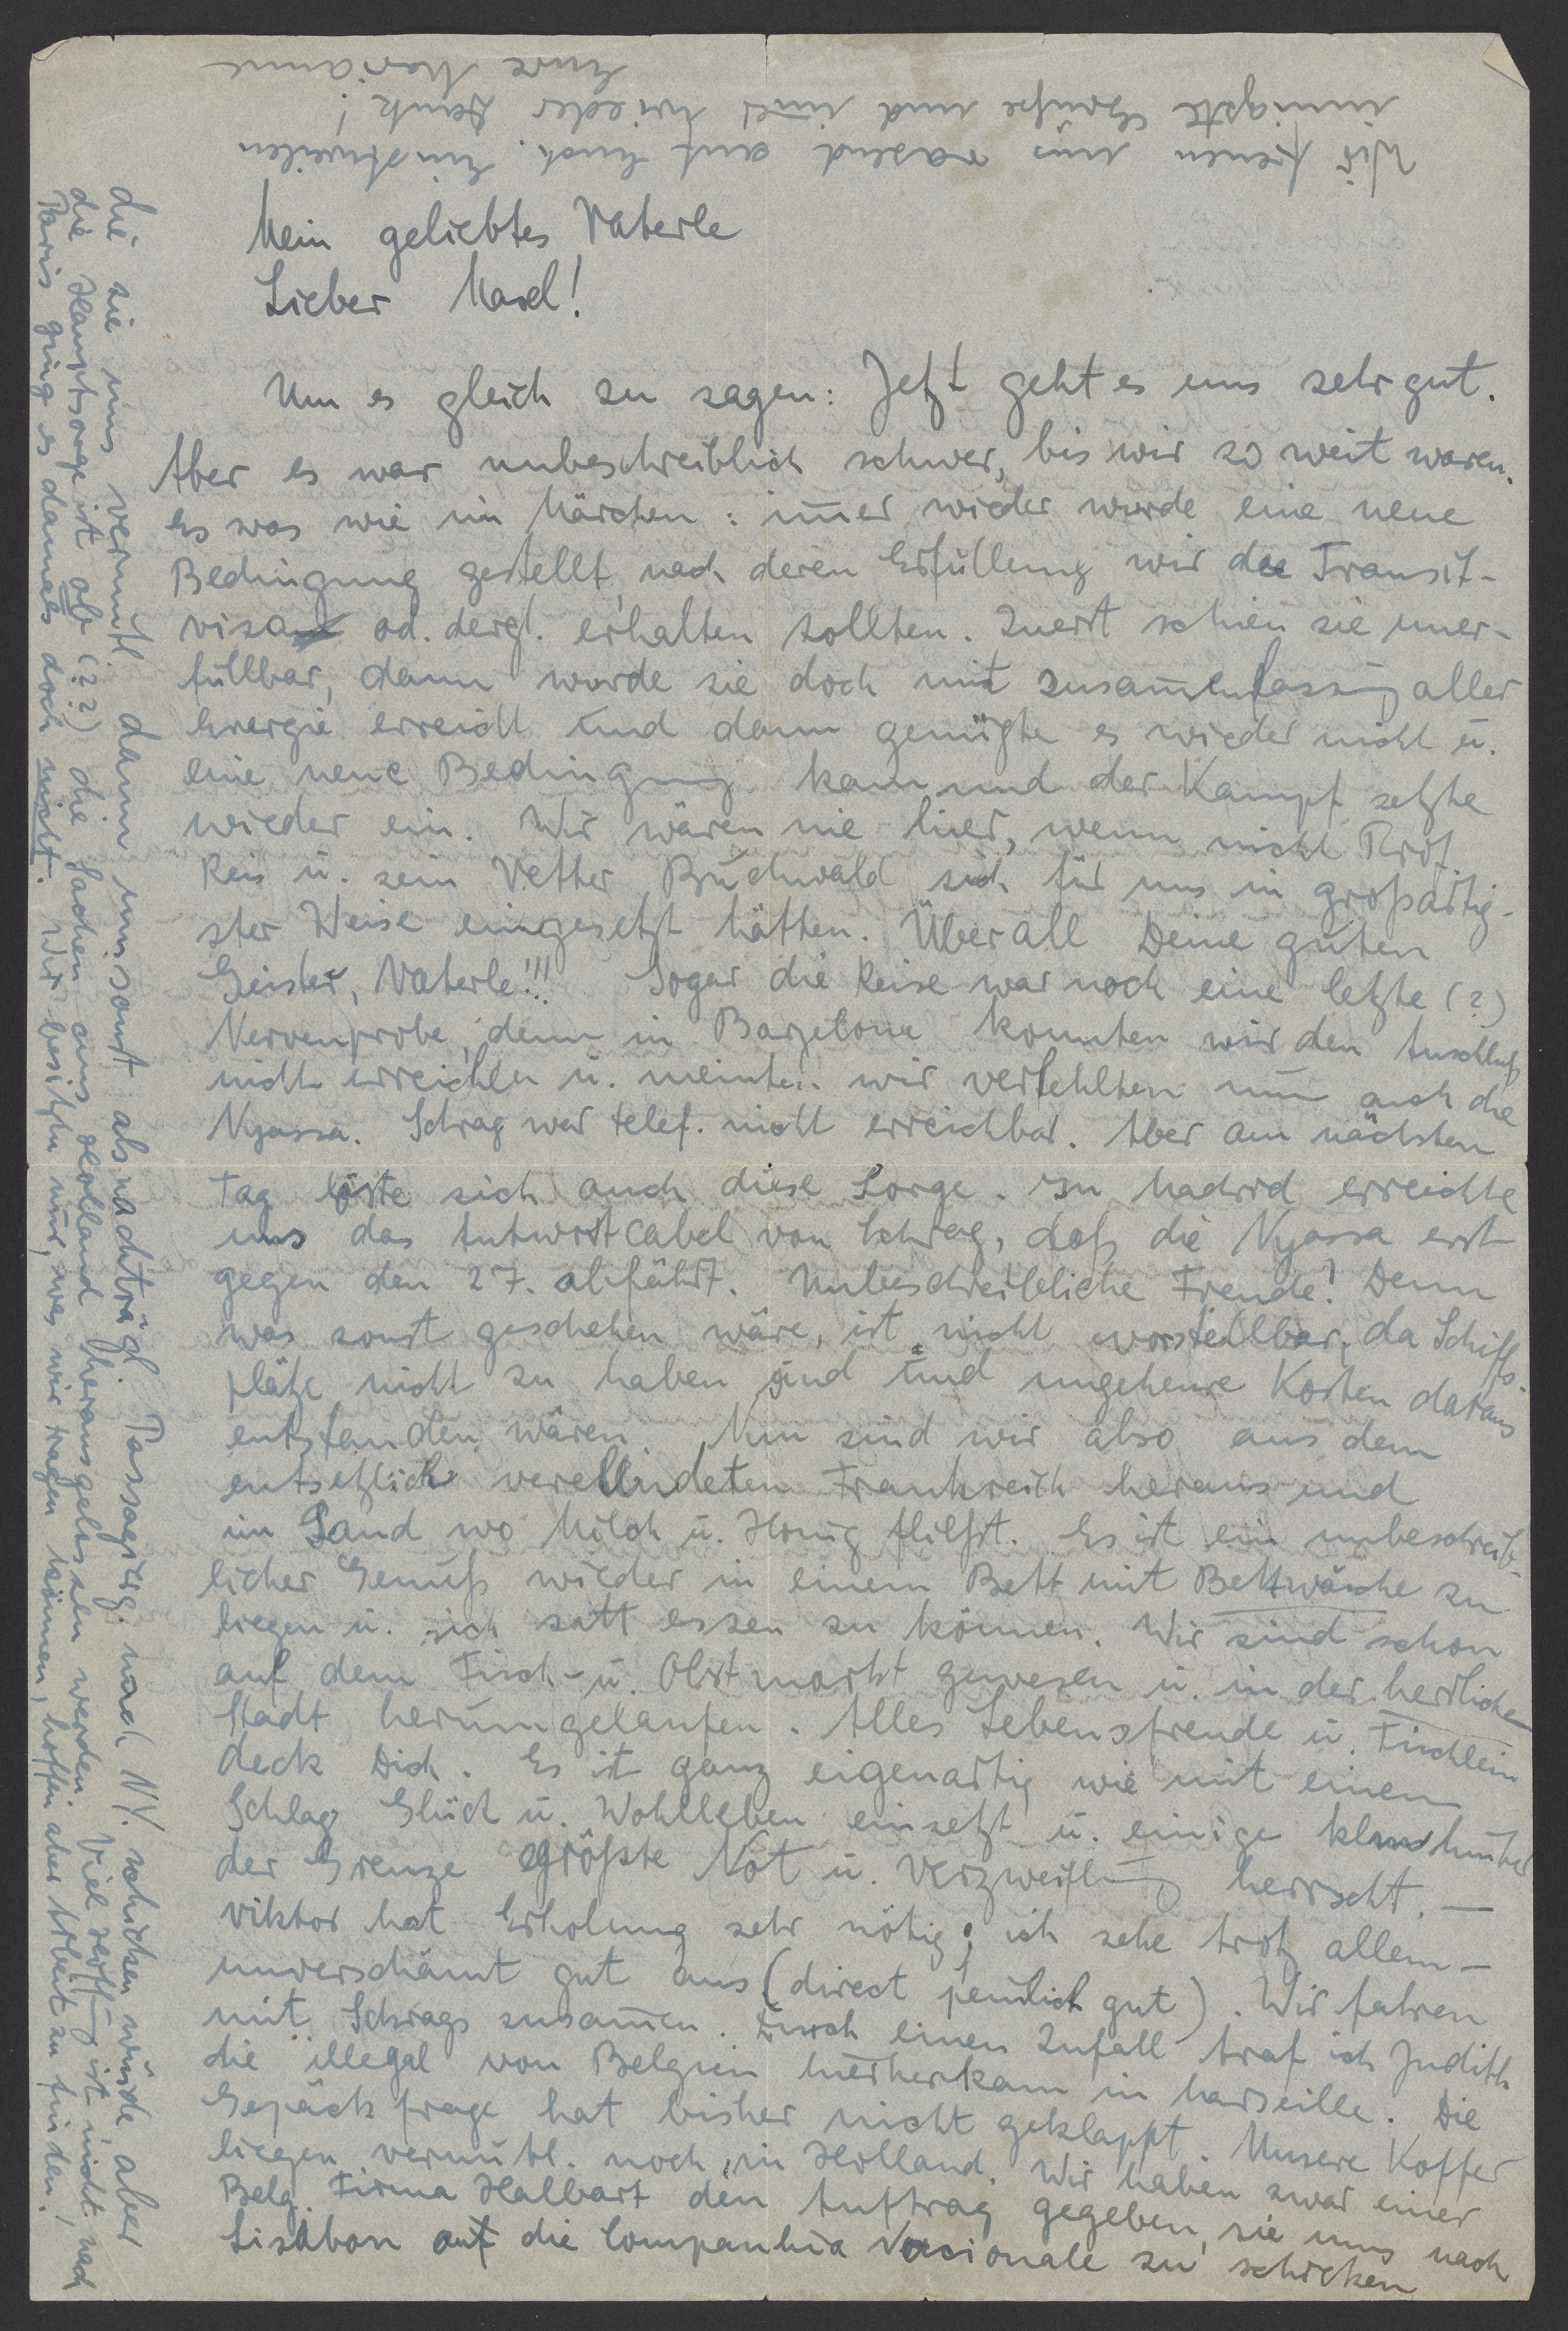 Mein geliebtes Vaterle
Lieber Maxl!
Um es gleich zu sagen: Jetzt geht es uns sehr gut.
Aber es war unbeschreiblich schwer, bis wir so weit waren.
Es war wie im Märchen: im̄er wieder wurde eine neue
Bedingung gestellt, nach deren Erfüllung wir die Transit-
visa od. dergl. erhalten sollten. Zuerst schien sie uner-
füllbar, dann wurde sie doch mit Zusam̄enfassung aller
Energie erreicht und dann genügte es wieder nicht u.
eine neue Bedingung kam und der Kampf setzte
wieder ein. Wir wären nie hier, wenn nicht Prof.
Reis u. sein Vetter Buchwald sich für uns in großartig-
ster Weise eingesetzt hätten. Überall Deine guten
Geister, Vaterle!!! Sogar die Reise war noch eine letzte (?)
Nervenprobe, denn in Barzelona konnten wir den Anschluß
nicht erreichen u. meinten wir verfehlten nun auch die
Nyassa. Schrag war telef. nicht erreichbar. Aber am nächsten
Tag löste sich auch diese Sorge. In Madrid erreichte
uns das Antwortcabel von Schrag, daß die Nyassa erst
gegen den 27. abfährt. Unbeschreibliche Freude! Denn
was sonst geschehen wäre, ist nicht vorstellbar, da Schiffs-
plätze nicht zu haben sind und ungeheure Kosten daraus
entstanden wären. Nun sind wir also aus dem
entsetzlich verelendeten Frankreich heraus und
im Land wo Milch u. Honig fließt. Es ist ein unbeschreib-
licher Genuß wieder in einem Bett mit Bettwäsche zu
liegen u. sich satt essen zu können. Wir sind schon
auf dem Fisch- u. Obstmarkt gewesen u. in der herrlichen
Stadt herumgelaufen. Alles Lebensfreude u. Tischlein
deck Dich. Es ist ganz eigenartig wie mit einem
Schlag Glück u. Wohlleben einsetzt u. einige klm hinter
der Grenze größte Not u. Verzweiflung herrscht. —
Viktor hat Erholung sehr nötig; ich sehe trotz allem —
unverschämt gut aus (direct peinlich gut). Wir fahren
mit Schrags zusam̄en. Durch einen Zufall traf ich Judith
die illegal von Belgien hierherkam in Marseille. Die
Gepäckfrage hat bisher nicht geklappt. Unsere Koffer
liegen vermutl. noch in Holland. Wir haben zwar einer
Belg. Firma Halbart den Auftrag gegeben, sie uns nach
Lissabon auf die Companhia Nacionale zu schicken
die sie uns vermutl. dann umsonst als nachträgl. Passagierg. nach NY. schicken würde aber
die Hauptsorge ist ob (??) die Sachen aus Holland herausgelassen werden. Viel Hoffnung ist nicht, nach
Paris ging es damals doch nicht. Wir besitzen nur, was wir tragen können, hoffen aber Arbeit zu finden.
Wir freuen uns rasend auf Euch. Einstweilen
innigste Grüße und im̄er wieder Dank!
Eure Marianne